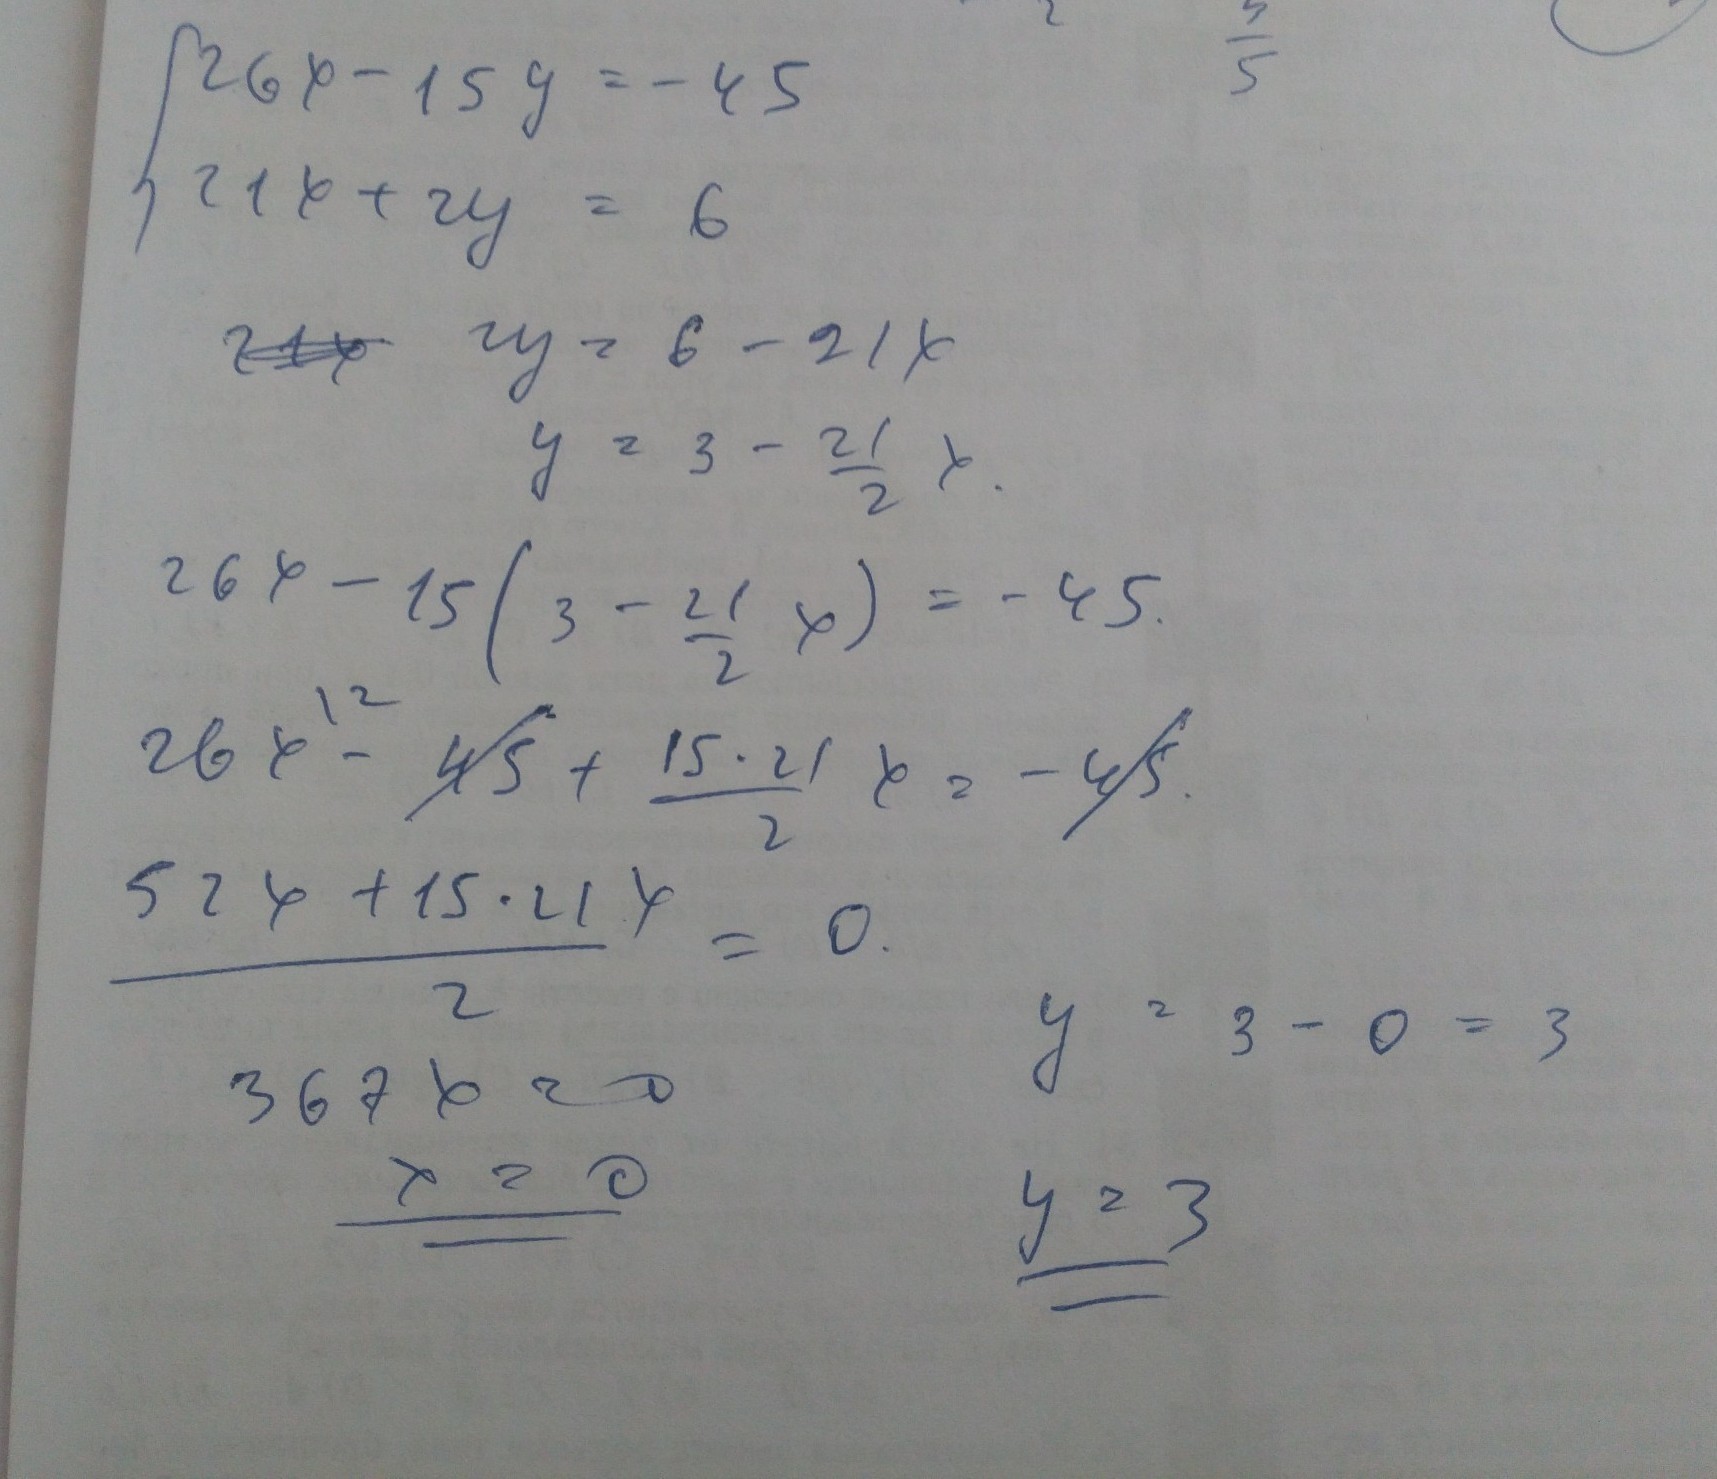 26x - 15y = -45
21x + 2y = 6
2y = 6 - 21x
y = 3 - 21/2 x.
26x - 15(3 - 21/2 x) = -45.
26x^12 - 45 + 15·21/2 x = -45.
52x + 15·21x / 2 = 0.
367x = 0
x = 0
y = 3 - 0 = 3
y = 3